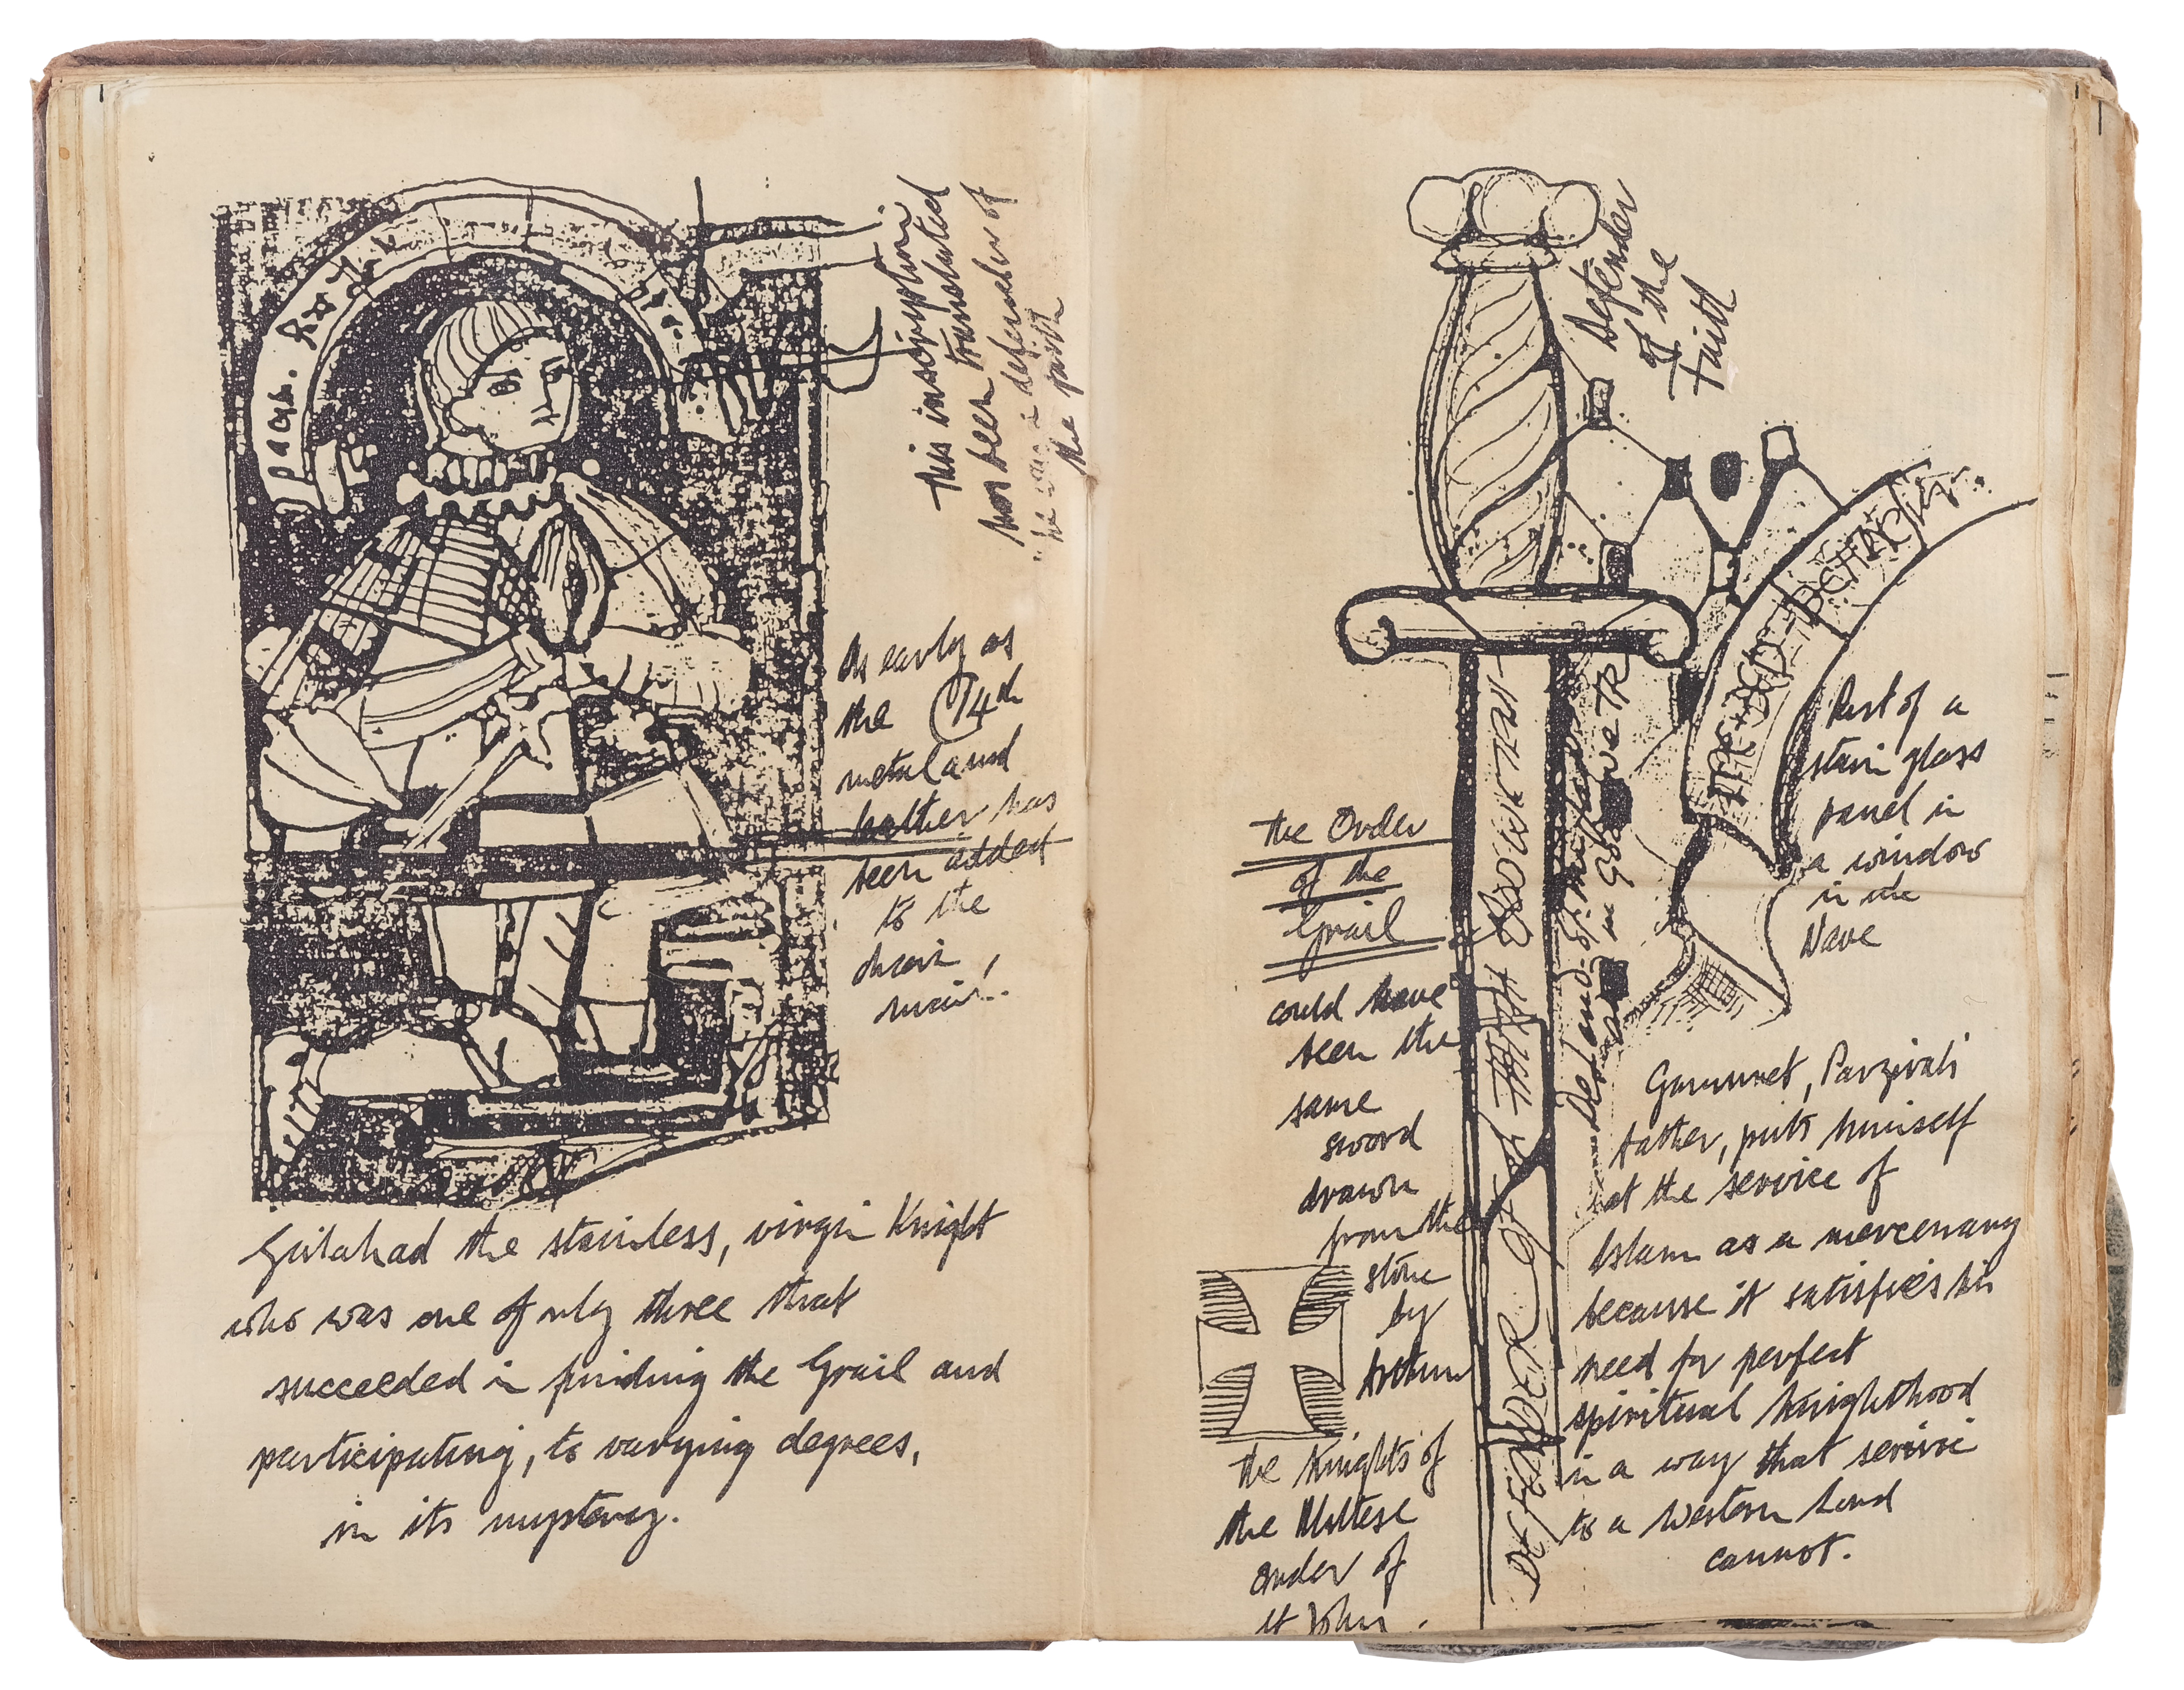 This inscription
has been translated
"he was a defender of
the faith
As early as
the C14th
metal and
leather has
been added
to the
chain
mail!
Galahad the stainless, virgin Knight
who was one of only three that
succeeded in finding the Grail and
participating, to varying degrees,
in its mystery.
Defender
of the
Faith
The Order
of the
Grail
could have
been the
same
sword
drawn
from the
stone
by
Arthur
The Knights of
the Maltese
Order of
St John.
DEFENDER OF THE FAITH
Part of a
stain glass
panel in
a window
in the
Nave
Gamuret, Parzival's
father, puts himself
at the service of
Islam as a mercenary
because it satisfies his
need for perfect
spiritual knighthood
in a way that service
to a Western Lord
cannot.